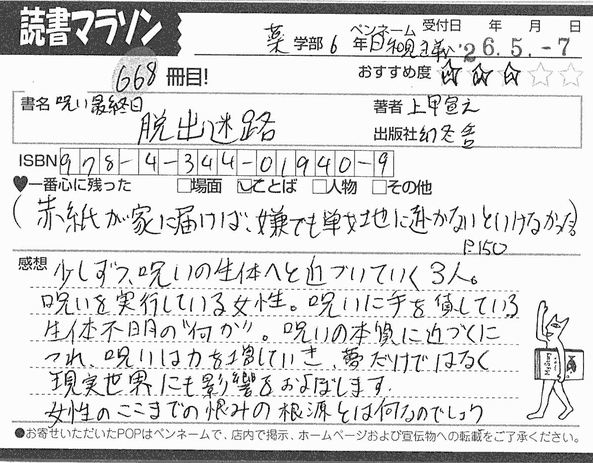 読書マラソン
薬 学部 6 年 ペンネーム 日和見主義 受付日 年 月 日 '26.5.-7
668冊目! おすすめ度 ☆☆☆☆☆
書名 呪い最終日 著者 上甲宣之
脱出迷路 出版社 幻冬舎
ISBN 978-4-344-01940-9
♥一番心に残った □場面 ☑ことば □人物 □その他
(赤紙が家に届けば、嫌でも戦地に赴かないといけなかった)
P.150
感想 少しずつ、呪いの正体へと近づいていく3人。
呪いを実行している女性。呪いに手を貸している
正体不明の"何か"。呪いの本質に近づくに
つれ、呪いは力を増していき、夢だけではなく
現実世界にも影響をおよぼします。
女性のここまでの恨みの根源とは何なのでしょう
●お寄せいただいたPOPはペンネームで、店内で掲示、ホームページおよび宣伝物への転載をご了承ください。